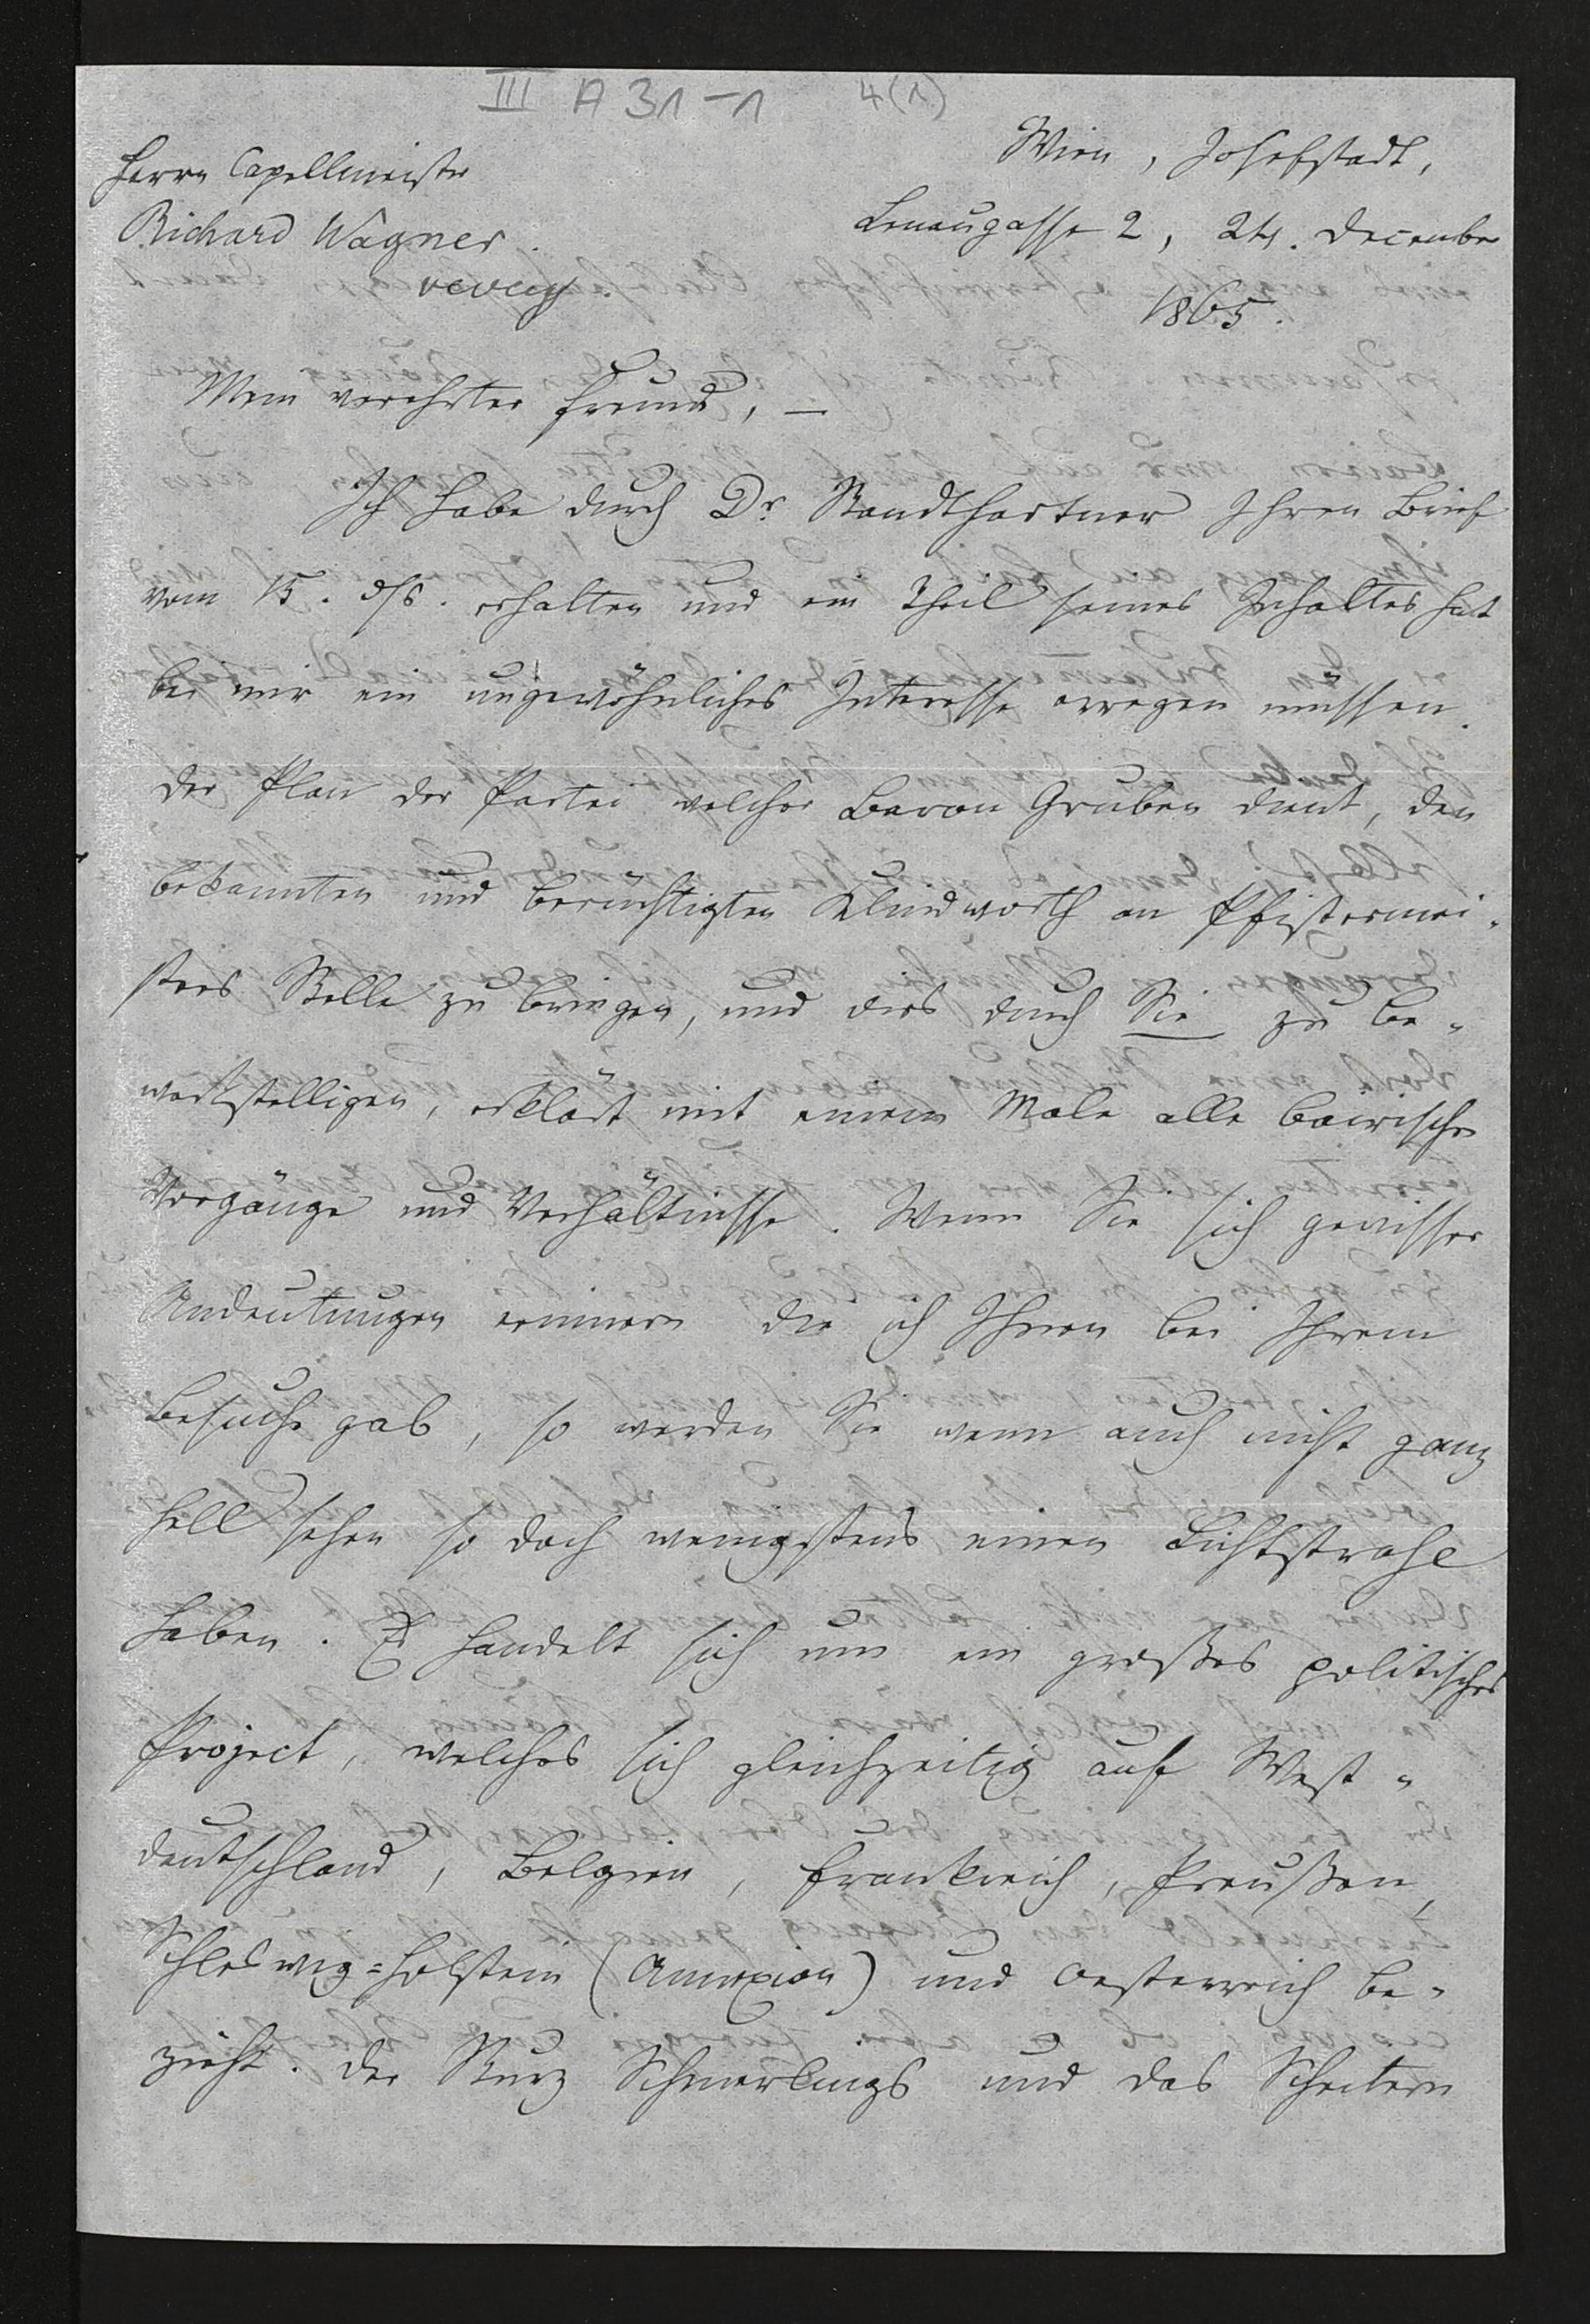 III A 31-1 4(1)
Herrn Capellmeister
Richard Wagner.
Vevey.
Wien, Josefstadt,
Lenaugasse 2, 24. December
1865.
Mein verehrter Freund, —
Ich habe durch Dr. Standthartner Ihren Brief
vom 15. ds. erhalten und ein Theil seines Inhaltes hat
bei mir ein ungewöhnliches Interesse erregen müssen.
Der Plan der Partei welcher Baron Gruben dient, den
bekannten und berüchtigten Klindworth an Pfistermei-
sters Stelle zu bringen, und dies durch Sie zu be-
werkstelligen, erklärt mit einem Male alle bairischen
Vorgänge und Verhältnisse. Wenn Sie sich gewisser
Andeutungen erinnern die ich Ihnen bei Ihrem
Besuche gab, so werden Sie wenn auch nicht ganz
hell sehen so doch wenigstens einen Lichtstrahl
haben. Es handelt sich um ein großes politisches
Project, welches sich gleichzeitig auf West-
deutschland, Belgien, Frankreich, Preußen,
Schleswig=Holstein (Annexion) und Oesterreich be-
zieht. Der Sturz Schmerlings und das Scheitern